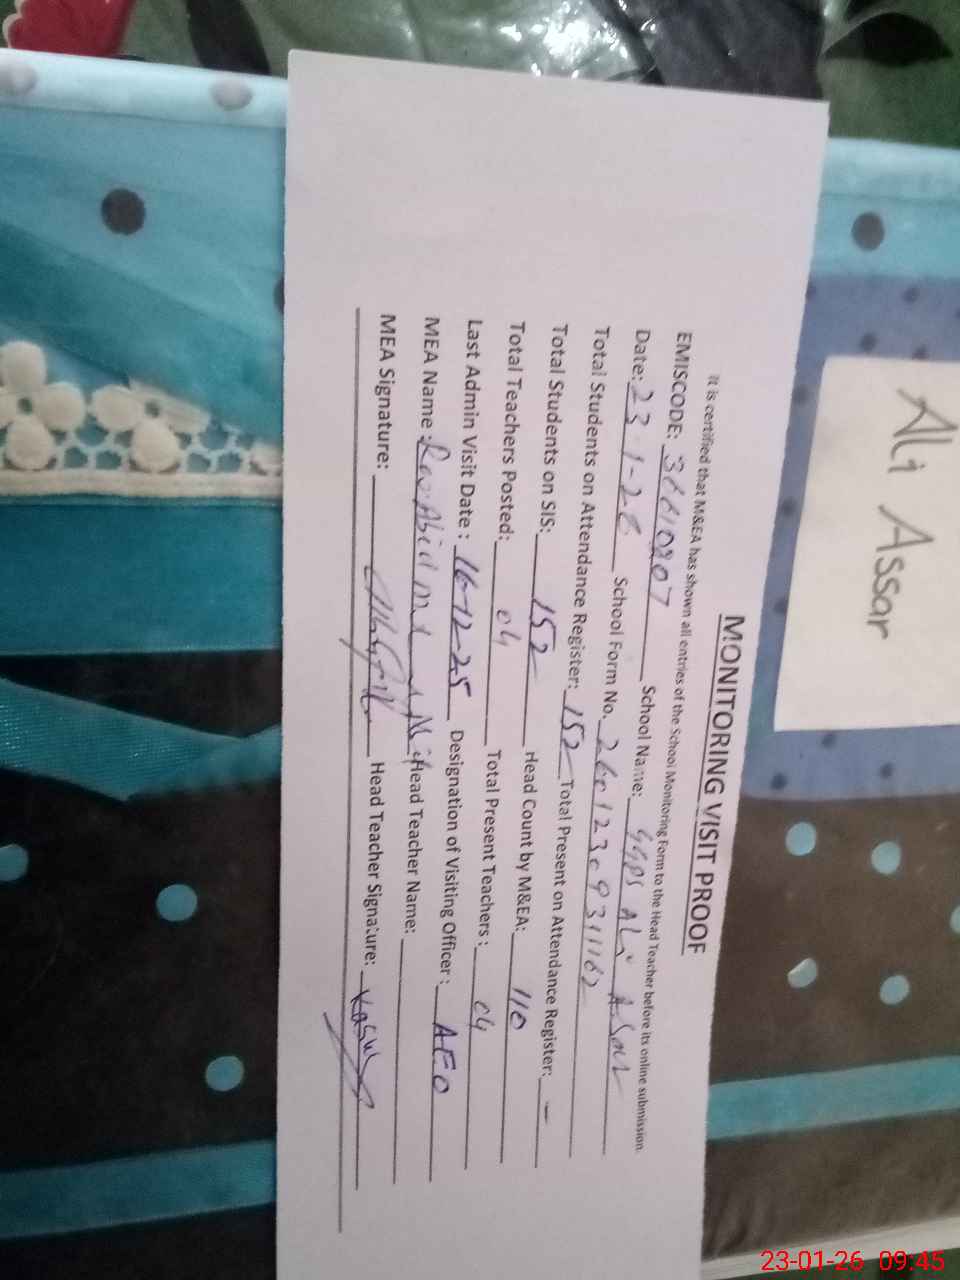 Ali Assar
MONITORING VISIT PROOF
It is certified that M&EA has shown all entries of the School Monitoring Form to the Head Teacher before its online submission.
EMISCODE: School Name: GGPS ALi ASar
Date: 23-1-26 School Form No.
Total Students on Attendance Register: 152 Total Present on Attendance Register: -
Total Students on SIS: 152 Head Count by M&EA: 110
Total Teachers Posted: 04 Total Present Teachers : 04
Last Admin Visit Date : 16-12-25 Designation of Visiting Officer : AEO
MEA Name : Head Teacher Name:
MEA Signature: Head Teacher Signature:
23-01-26 09:45